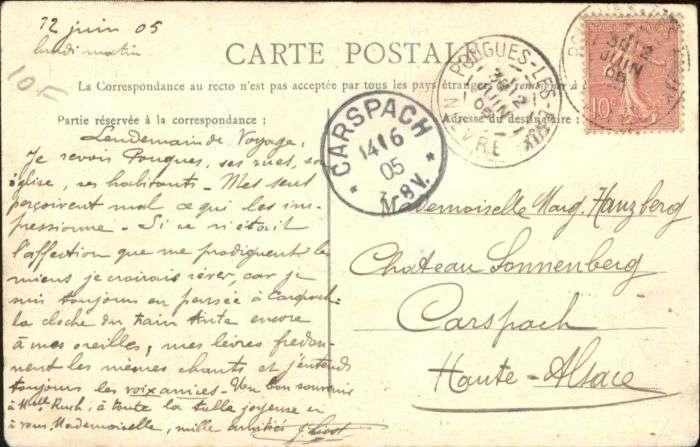 12 juin 05
lundi matin
10F
CARTE POSTALE
La Correspondance au recto n'est pas acceptée par tous les pays étrangers
Partie réservée à la correspondance :
Adresse du destinataire :
Lendemain de Voyage,
Je revois Pougues, ses rues, son
église, ses habitants - Mes sens
perçoivent mal ce qui les im-
pressionne. - Si ce n'était
l'affection que me prodiguent les
miens je croirais rêver, car je
suis toujours en pensée à Carspach.
la cloche du train tinte encore
à mes oreilles, mes lèvres fredon-
nent les mêmes chants et j'entends
toujours les voix amies - Un bon souvenir
à Mlle Ruch, à toute la table joyeuse et
à vous Mademoiselle, mille amitiés
CARSPACH
14 6
05
8V.
POUGUES-LES-EAUX
12
JUIN
05
NIEVRE
12
JUIN
05
10c
Mademoiselle Marg. Hanzberg
Chateau Sonnenberg
Carspach
Haute-Alsace